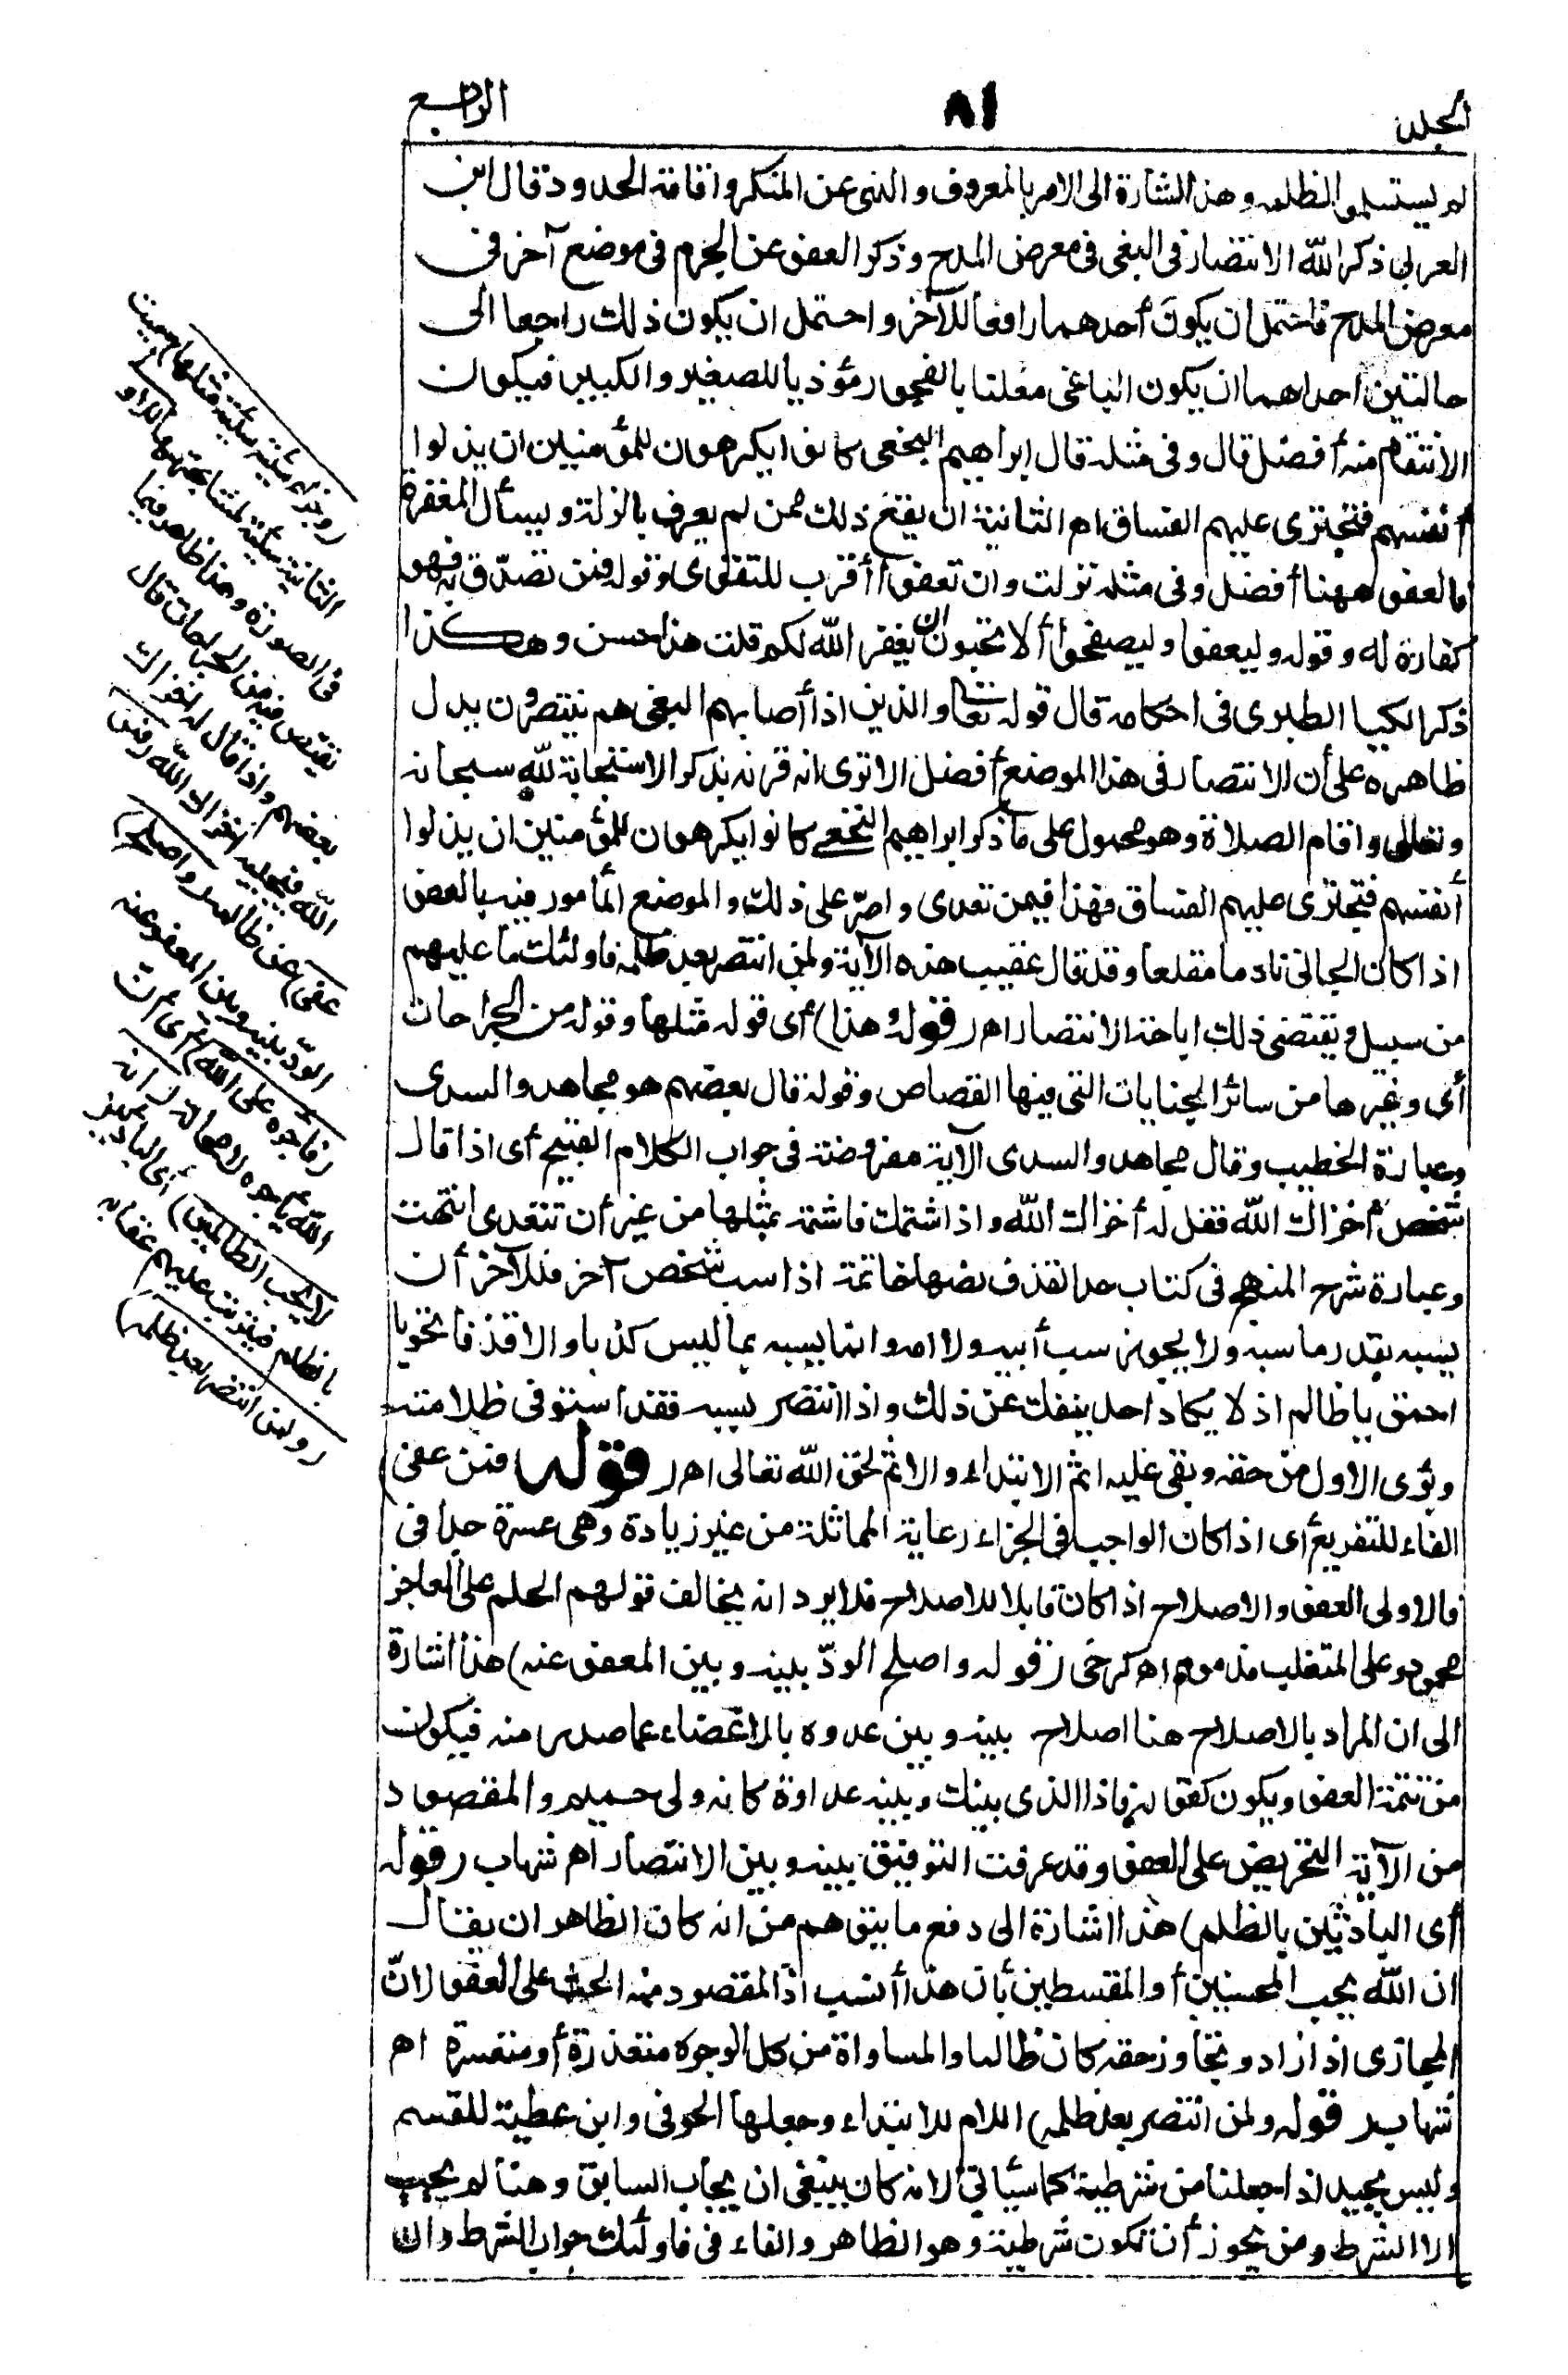 المجلد
٨١
الرابع
لم يستسلموا لظلمه وهذا اشارة الى الامر بالمعروف والنهى عن المنكر واقامة الحدود قال ابن
العربى ذكر الله الانتصار فى البغى فى معرض المدح وذكر العفو عن الجرم فى موضع آخر فى
معرض المدح فاحتمل ان يكون أحدهما رافعا للآخر واحتمل ان يكون ذلك راجعا الى
حالتين احداهما ان يكون الباغى معلنا بالفجور مؤذيا للصغير والكبير فيكون
الانتقام منه أفضل قال وفى مثله قال ابراهيم النخعى كانوا يكرهون للمؤمنين ان يذلوا
أنفسهم فتجترى عليهم الفساق اه الثانية ان يقع ذلك ممن لم يعرف بالزلة ويسأل المغفرة
فالعفو ههنا أفضل وفى مثله نزلت وان تعفوا أقرب للتقوى وقوله فمن تصدّق به فهو
كفارة له وقوله وليعفوا وليصفحوا ألا تحبون ان يغفر الله لكم قلت هذا حسن وهكذا
ذكر الكيا الطبرى فى احكامه قال قوله تعا والذين اذا أصابهم البغى هم ينتصرون يدل
ظاهره على أن الانتصار فى هذا الموضع أفضل الا ترى انه قرنه بذكر الاستجابة لله سبحانه
وتعالى واقام الصلاة وهو محمول على ما ذكر ابراهيم النخعى كانوا يكرهون للمؤمنين ان يذلوا
أنفسهم فتجترى عليهم الفساق فهذا فيمن تعدى واصرّ على ذلك والموضع المأمور فيه بالعفو
اذا كان الجانى نادما مقلعا وقد قال عقيب هذه الآية ولمن انتصر بعد ظلمه فاولئك ما عليهم
من سبيل ويقتضى ذلك اباحة الانتصار اه (قوله وهذا) أى قوله مثلها وقوله من الجراحات
أى وغيرها من سائر الجنايات التى فيها القصاص وقوله قال بعضهم هو مجاهد والسدى
وعبارة الخطيب وقال مجاهد والسدى الآية مفروضة فى جواب الكلام القبيح أى اذا قال
شخص أخزاك الله فقل له أخزاك الله واذا شتمك فاشتمه بمثلها من غير أن تتعدى انتهت
وعبارة شرح المنهج فى كتاب حد القذف نصها خاتمة اذا سب شخص آخر فللآخر أن
يسبه بقدر ما سبه ولا يجوز سب أبيه ولا امه وانما يسبه بما ليس كذبا ولا قذفا نحو يا
احمق يا ظالم اذ لا يكاد احد ينفك عن ذلك واذا انتصر بسبه فقد استوفى ظلامته
وبرى الاول من حقه وبقى عليه اثم الابتداء والاثم لحق الله تعالى اه (قوله فمن عفى)
الفاء للتفريع أى اذا كان الواجب فى الجزاء رعاية المماثلة من غير زيادة وهى عسرة جدا فى
فالاولى العفو والاصلاح اذا كان قابلا للاصلاح فلا يرد انه يخالف قولهم الحلم على العاجز
محمود وعلى المتغلب مذموم اه كرخى (قوله واصلح الودّ بينه وبين المعفو عنه) هذا اشارة
الى ان المراد بالاصلاح هنا اصلاح بينه وبين عدوه بالاغضاء عما صدر منه فيكون
من تتمة العفو ويكون كقوله فاذا الذى بينك وبينه عداوة كانه ولى حميم والمقصود
من الآية التحريض على العفو وقد عرفت التوفيق بينه وبين الانتصار اه شهاب (قوله
أى البادئين بالظلم) هذا اشارة الى دفع ما يتوهم من انه كان الظاهر ان يقال
ان الله يحب المحسنين أو المقسطين بأن هذا أنسب اذ المقصود منه الحث على العفو لانّ
المجازى اذا زاد وتجاوز حقه كان ظالما والمساواة من كل الوجوه متعذرة أو متعسرة اه
شهاب (قوله ولمن انتصر بعد ظلمه) اللام للابتداء وجعلها الحوفى وابن عطية للقسم
وليس بجيد اذا جعلنا من شرطية كما سيأتى لانه كان ينبغى ان يجاب السابق وهنا لم يجب
الا الشرط ومن يجوز أن تكون شرطية وهو الظاهر والفاء فى فاولئك جواب الشرط وان
(وجزاء سيئة سيئة مثلها) سميت
الثانية سيئة لمشابهتها للاولى
فى الصورة وهذا ظاهر فيما
يقتص فيه من الجراحات قال
بعضهم واذا قال له اخزاك
الله فيجيبه اخزاك الله (فمن
عفى) عن ظالمه (واصلح)
الودّ بينه وبين المعفو عنه
(فاجره على الله) أى ان
الله يأجره لا محالة (انه
لا يحب الظالمين) أى البادئين
بالظلم فيترتب عليهم عقابه
(ولمن انتصر بعد ظلمه)